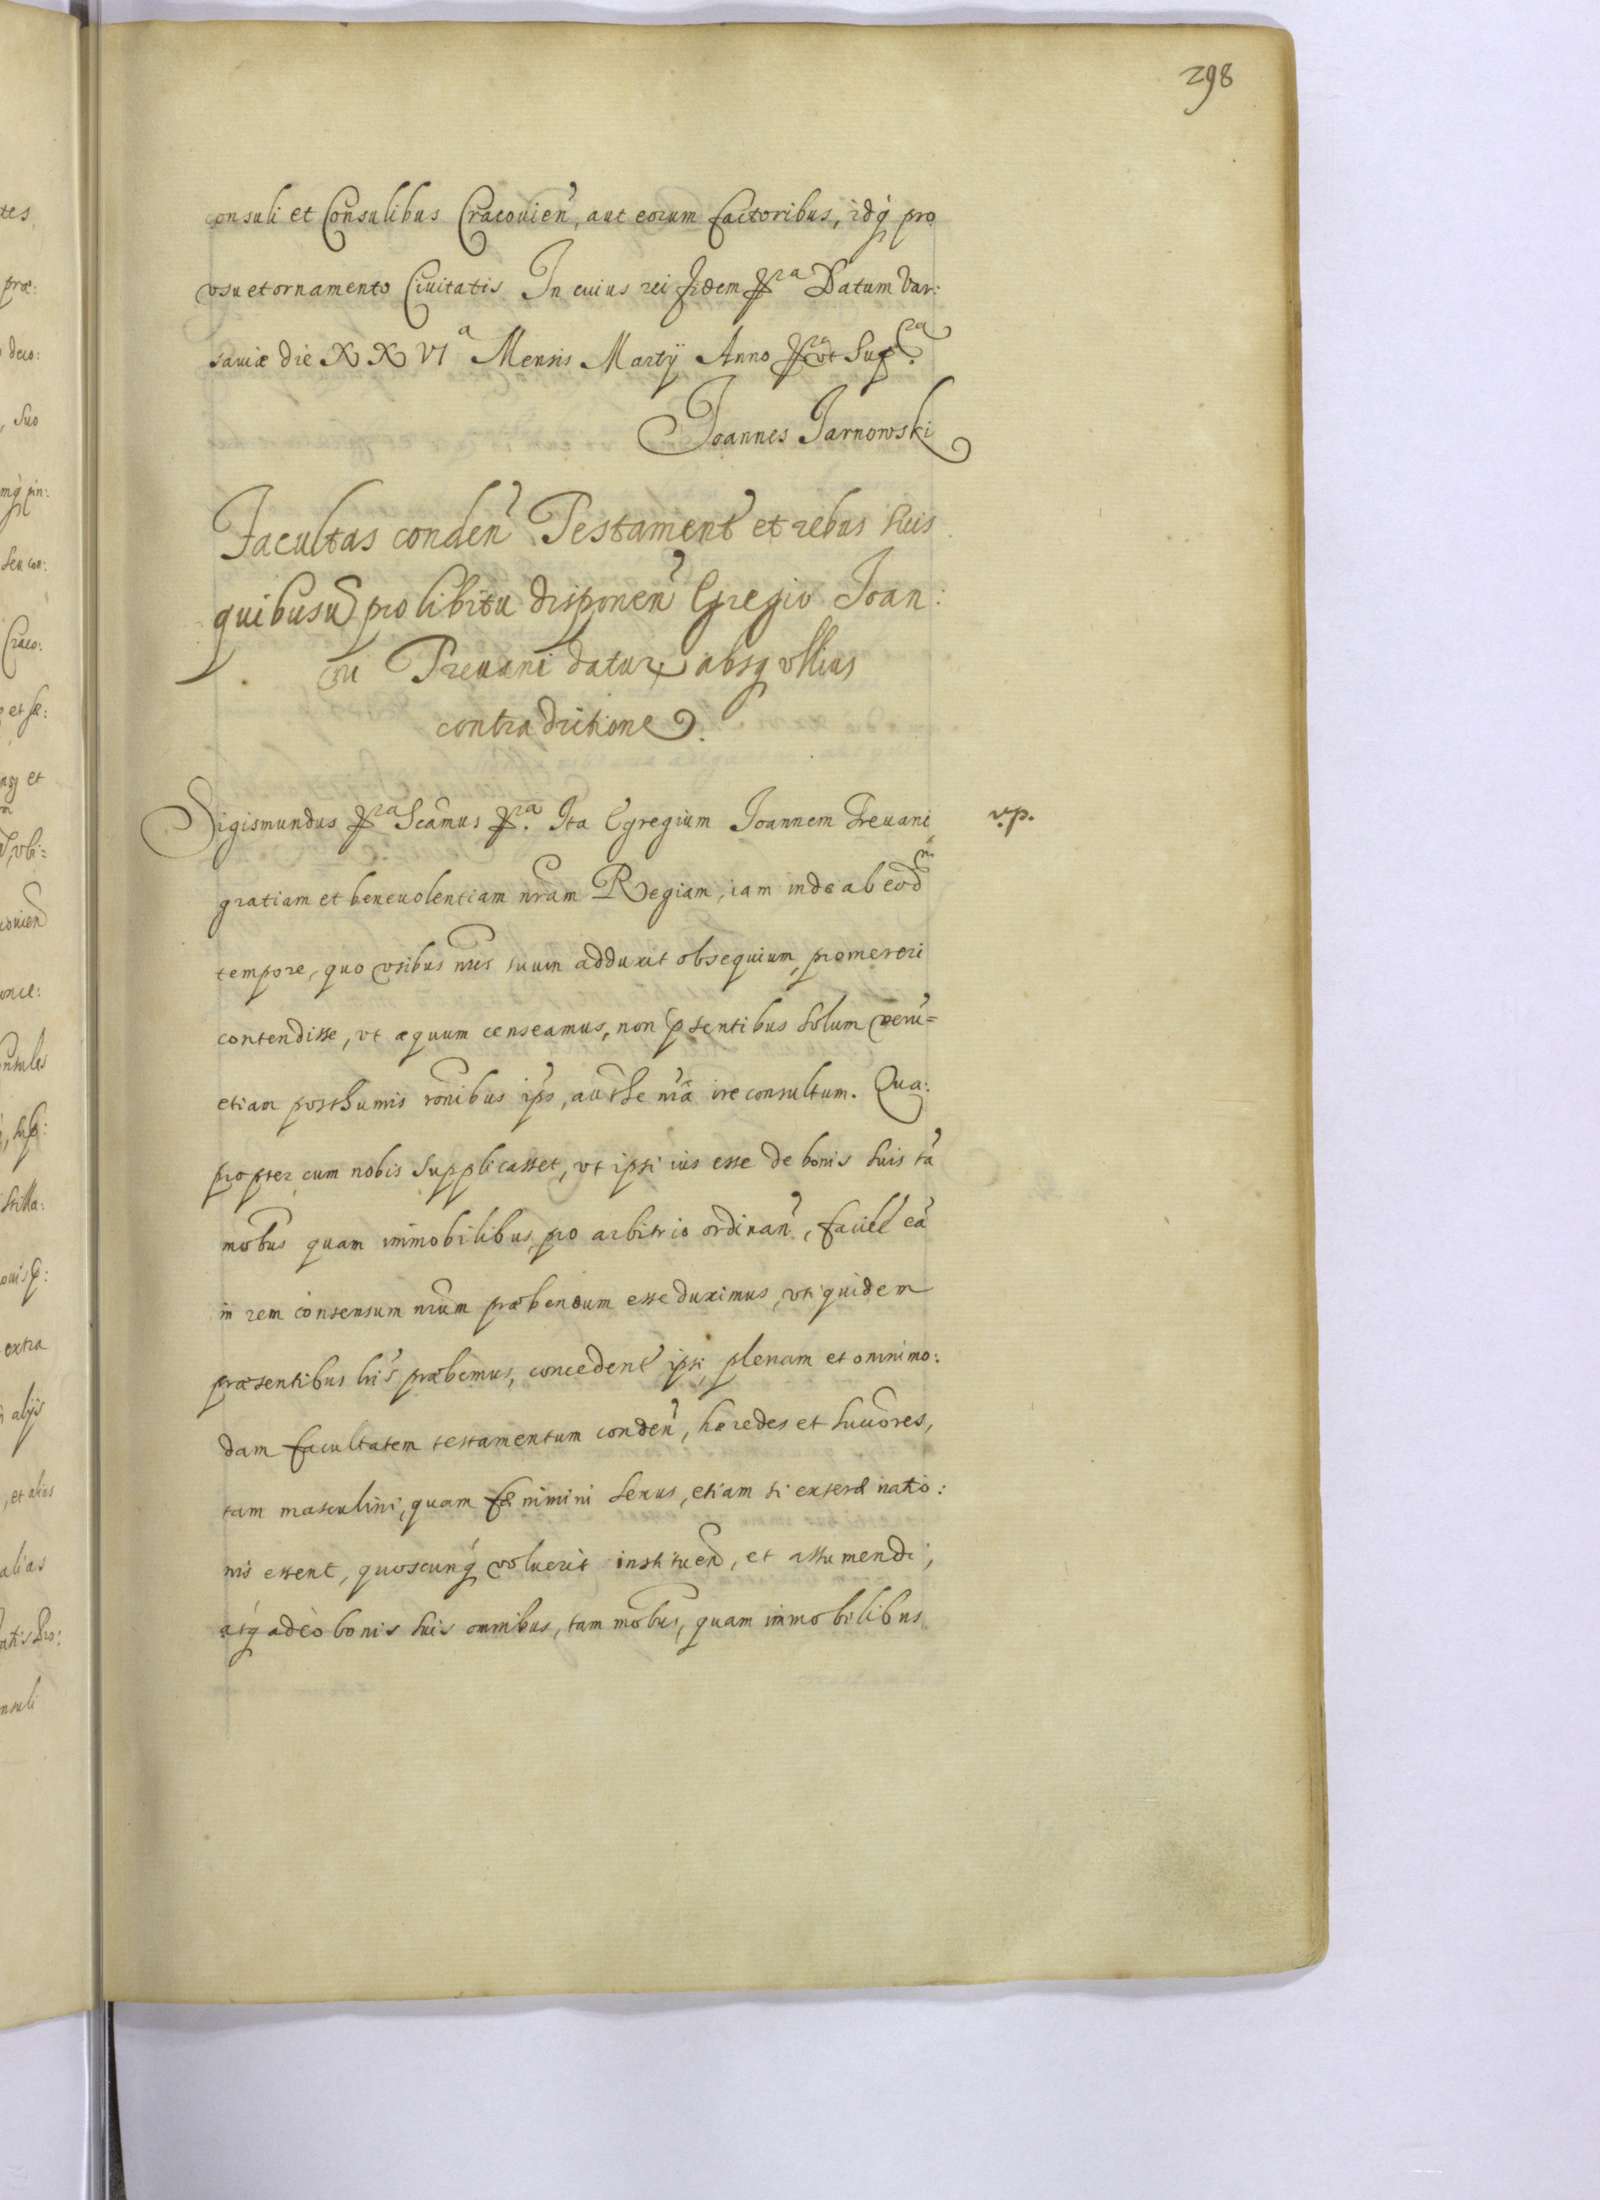 298
consuli et Consulibus Cracouień, aut eorum factoribus, idq́ pro
vsu et ornamento Ciuitatis In cuius rei fidem pra Datum Var:
sauiæ die XXVIa Mensis Martij Anno pra ut supra.
Joannes Tarnowski
Facultas condeń Testament et rebus suis
quibusuis pro libitu disponeń Egregio Joan:
ni Treuani datur absq vllius
contradictione.
Sigismundus pra Scamus pra. Ita Egregium Joannem Treuani
v.p.
gratiam et beneuolentiam nram Regiam, iam inde ab eodm
tempore, quo vsibus nris suum adduxit obsequium, promereri
contendisse, vt æquum censeamus, non pñtibus solum verù=
etiam posthumis ronibus ips, authe nrã ire consultum. Qua:
propter cum nobis supplicasset, vt ipsi ius esse de bonis suis tã
mobus quam immobilibus, pro arbitrio ordinań, facile eã
in rem consensum nrum præbendum esse duximus, vti quidem
præsentibus lris præbemus, concedent ipsi, plenam et omnimo:
dam facultatem testamentum condeń, hæredes et succores,
tam masculini, quam fæminini sexus, etiam si exteræ natio:
nis essent, quoscunq́ voluerit instituen, et assumendi,
atq́ adeò bonis suis omnibus, tam mobus, quam immobilibus